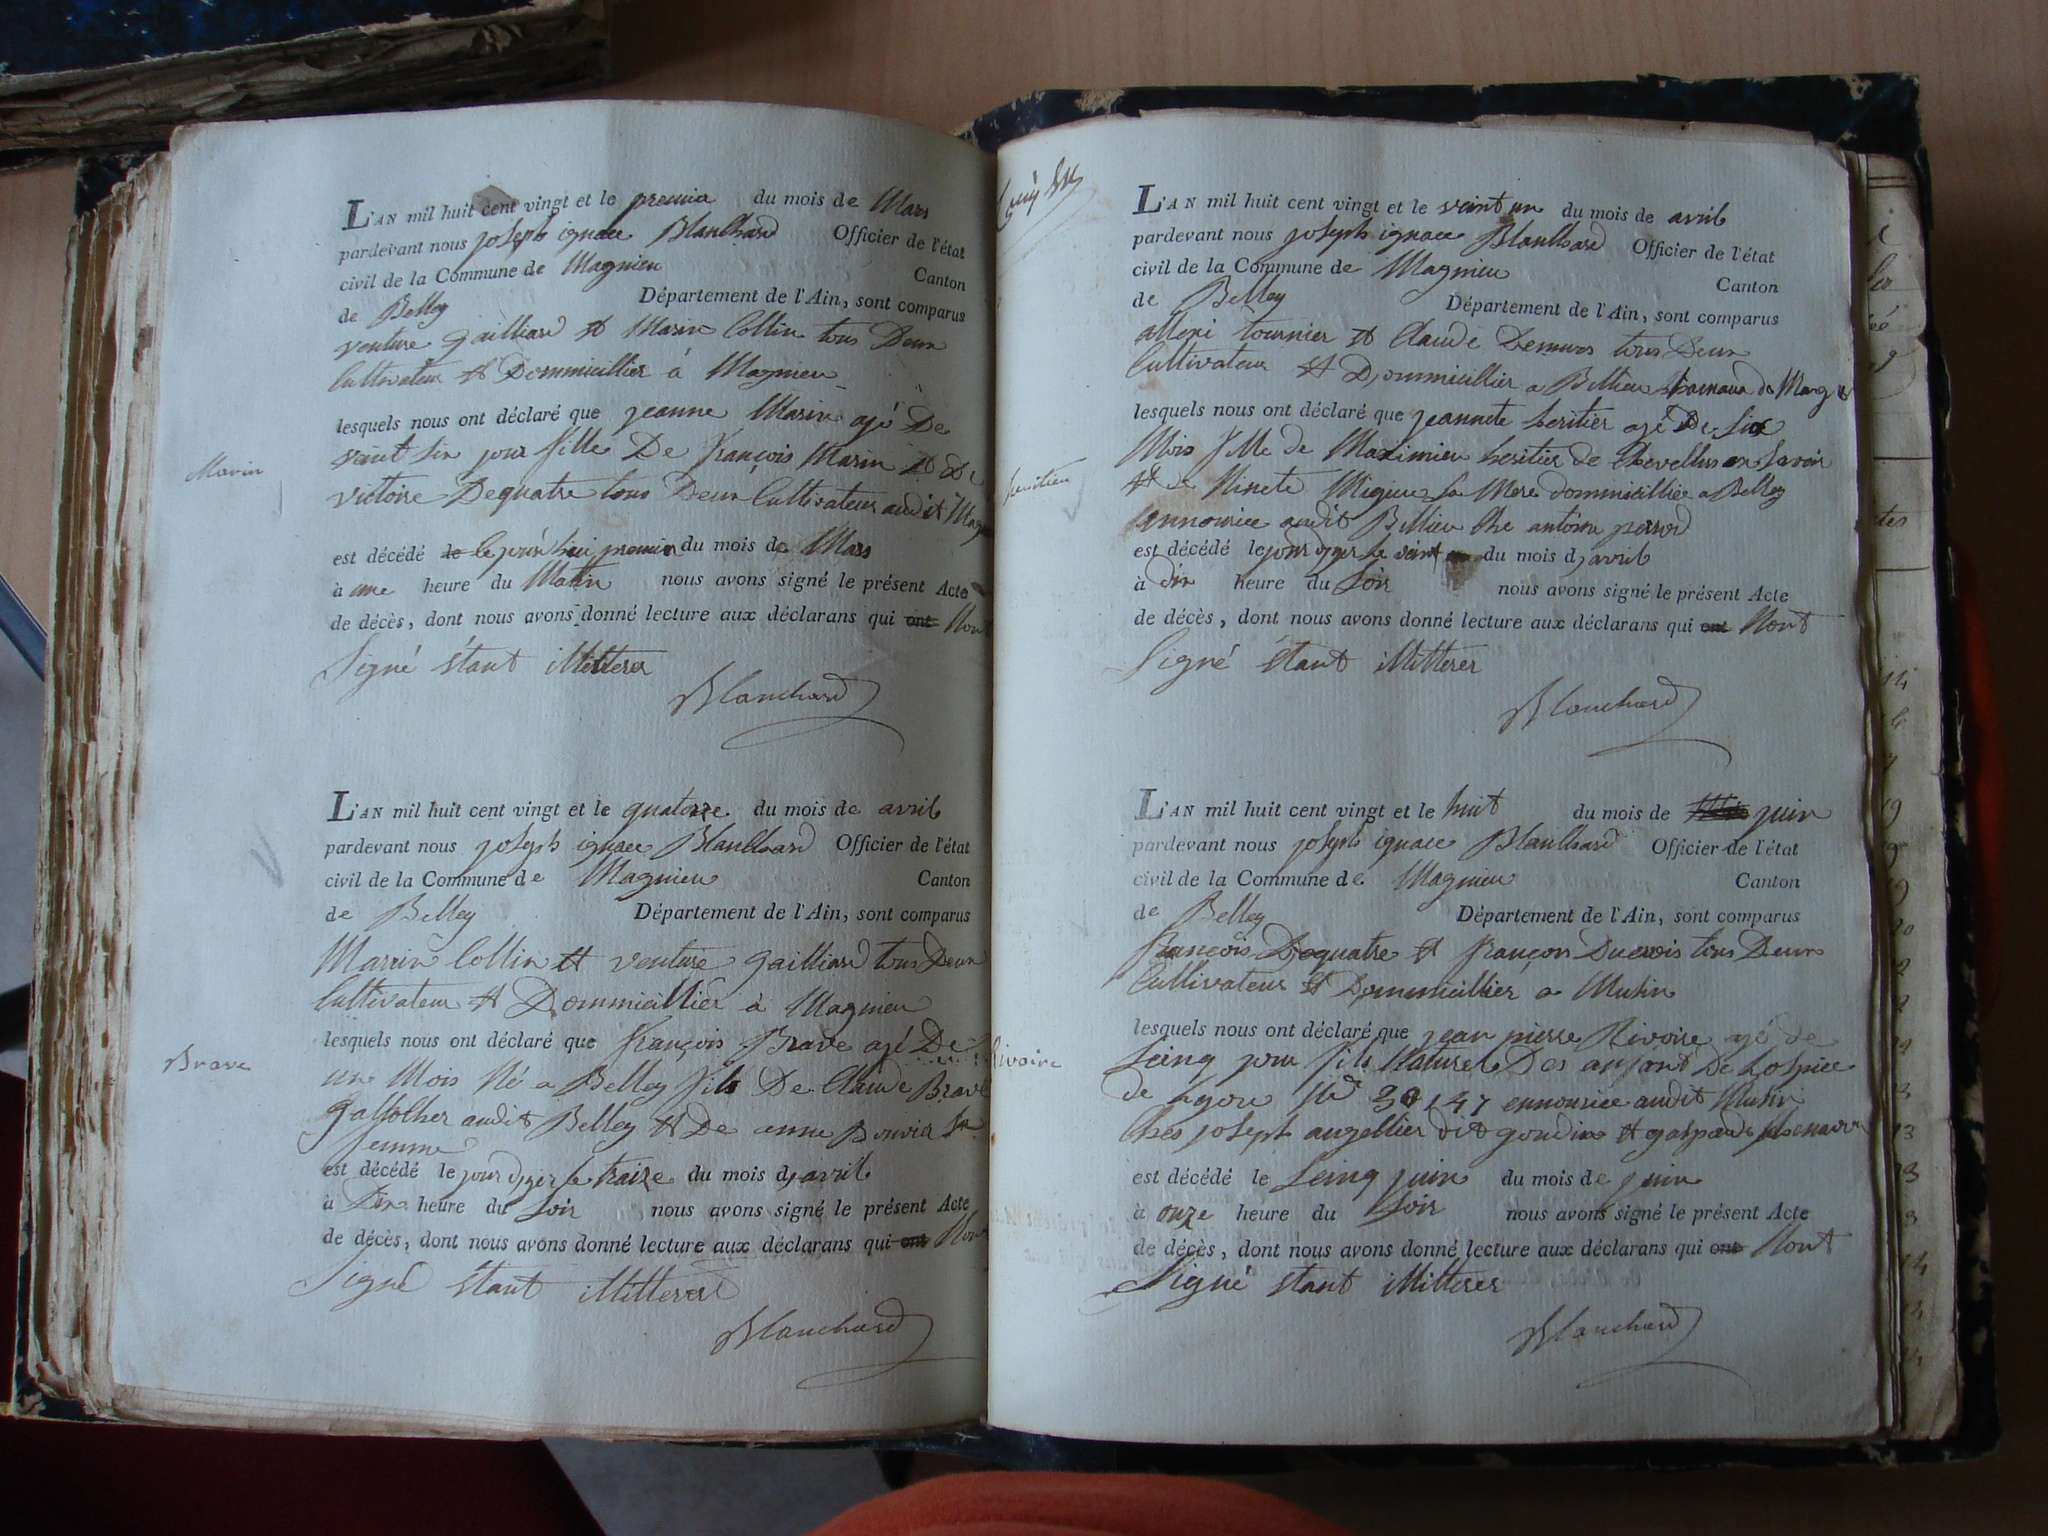 L'AN mil huit cent vingt et le premier du mois de Mars
pardevant nous joseph ignace Blanchard Officier de l'état
civil de la Commune de Magnieu Canton
de Belley Département de l'Ain, sont comparus
venture gailliard et Marin Collin tous Deux
Cultivateur et Dommicillier à Magnieu
lesquels nous ont déclaré que jeanne Marin agé De
vaint jour fille De françois Marin et de
Marin
victoire Dequatre tous Deux Cultivateur audit
est décédé le jour premier du mois de Mars
à une heure du Matin nous avons signé le présent Acte
de décès, dont nous avons donné lecture aux déclarans qui ont Nont
Signé étant illitterer
Blanchard
L'AN mil huit cent vingt et le quatorze du mois de avril
pardevant nous joseph ignace Blanchard Officier de l'état
civil de la Commune de Magnieu Canton
de Belley Département de l'Ain, sont comparus
Marin Collin et venture gailliard tous Deux
Cultivateur et Dommicillier à Magnieu
lesquels nous ont déclaré que françois Brave agé De
Brave
un Mois Né a Belley fils De Claude Brave
audit Belley et De anne Bouvier sa
femme
est décédé le jour dyer le traize du mois d, avril
à Dix heure du Soir nous avons signé le présent Acte
de décès, dont nous avons donné lecture aux déclarans qui ont Nont
Signé étant illitterer
Blanchard
L'AN mil huit cent vingt et le vaint un du mois de avril
pardevant nous joseph ignace Blanchard Officier de l'état
civil de la Commune de Magnieu Canton
de Belley Département de l'Ain, sont comparus
allexi tournier et Claude Demurs tous Deux
Cultivateur et Dommicillier a Billieu
lesquels nous ont déclaré que jeannete heritier agé De Six
Mois fille de Maximien heritier de
et de Ninete la Mere dommicilliée a Belley
ennourice audit Billieu Ché antoine
est décédé le jour dyer le vaint du mois d, avril
à dix heure du Soir nous avons signé le présent Acte
de décès, dont nous avons donné lecture aux déclarans qui ont Nont
Signé étant illitterer
Blanchard
L'AN mil huit cent vingt et le huit du mois de juin
pardevant nous joseph ignace Blanchard Officier de l'état
civil de la Commune de Magnieu Canton
de Belley Département de l'Ain, sont comparus
françois Dequatre et françois Ducrois tous Deux
Cultivateur et Dommicillier a Musin
lesquels nous ont déclaré que jean pierre Rivoire agé de
ivoire
Seinq jour fils Naturel Des anfant De Lospice
de 147 ennourice audit Musin
Ches joseph augellier dit goudin et gaspard
est décédé le Seinq juin du mois de juin
à onze heure du Soir nous avons signé le présent Acte
de décès, dont nous avons donné lecture aux déclarans qui ont Nont
Signé étant illitterer
Blanchard